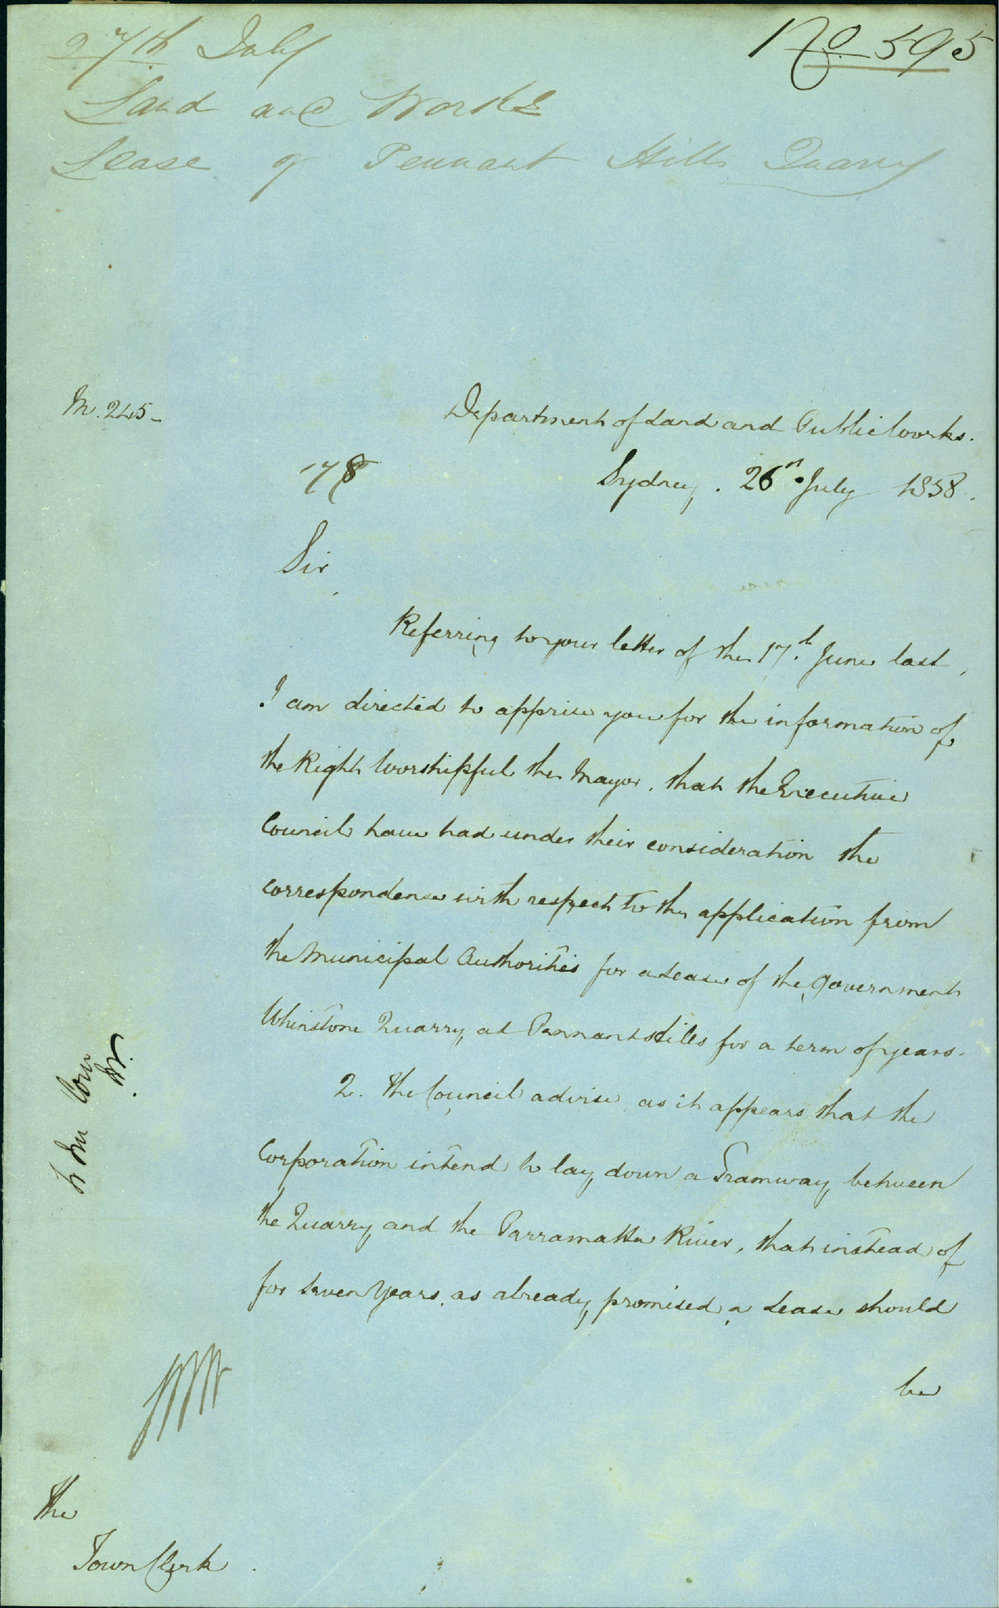 No 595
27th July
Land and Works
Lease of Pennant Hills Quarry
M. 245
Department of Land and Public Works.
178
Sydney. 26th July 1858.
Sir
Referring to your letter of the 17th June last,
I am directed to apprise you for the information of
the Right Worshipful the Mayor, that the Executive
Council have had under their consideration the
correspondence with respect to the application from
the Municipal Authorities for a Lease of the Government
Whinstone Quarry, at Pennant Hills for a term of years.
2. The Council advise as it appears that the
Corporation intend to lay down a Tramway, between
the Quarry and the Parramatta River, that instead of
for seven years, as already promised a Lease should
be
The
Town Clerk